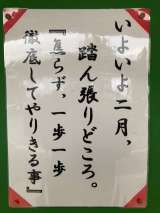 いよいよ二月、
踏ん張りどころ。
『焦らず、一歩一歩
徹底してやりきる事』